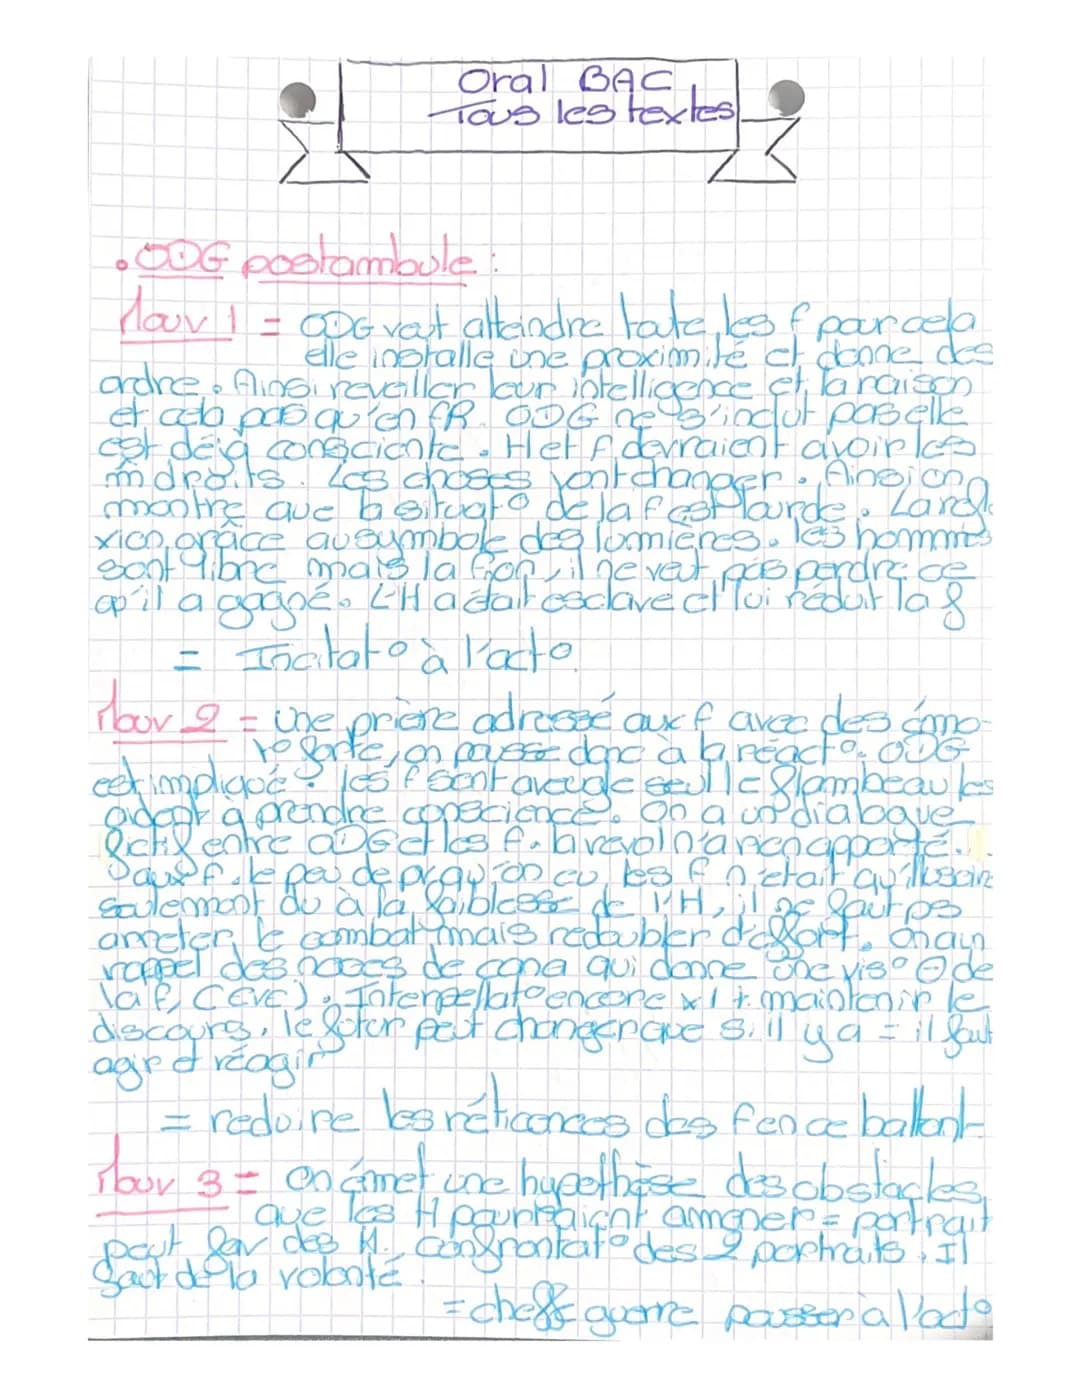 Oral BAC
Tous les textes
• ODG postambule :
Mouv 1 = ODG veut atteindre toute les f pour cela
elle installe une proximité et donne des
ordre. Ainsi reveiller leur intelligence et la raison
et cela pas qu'en FR. ODG ne s'inclut pas elle
est déjà consciente. H et f devraient avoir les
m̂ droits. Les choses vont changer. Ainsi on
montre que la situat° de la f est lourde. La
grâce au symbole des lumières. les hommes
sont libre mais la non, il ne veut pas perdre ce
qu'il a gagné. L'H a était esclave et lui réduit la f
= Incitat° à l'act°.
Mouv 2 = une prière adressé aux f avec des émo-
t° forte, on pousse donc à la réact°. ODG
est impliqué. les f sont aveugle seul le flambeau les
aident à prendre conscience. On a un dialogue
fictif entre ODG et les f. la revol n'a rien apporté.
aux f. le peu de les f n'était qu'illusoire
seulement du à la faiblesse de l'H, il ne faut ps
arreter le combat mais redoubler d'effort. On a un
rappel des noces de cana qui donne une vis° ⊖ de
la f, (EVE). Interpellat° encore x1 + maintenir le
discours, le futur peut changer que s'il y a = il faut
agir et réagir
= reduire les réticences des f en ce
Mouv 3 = On émet une hypothèse des obstacles
que les H pourraient ammener = portrait
peut fav des H. Confrontat° des 2 portraits. Il
faut de la volonté.
= cheff guerre pousser à l'act°